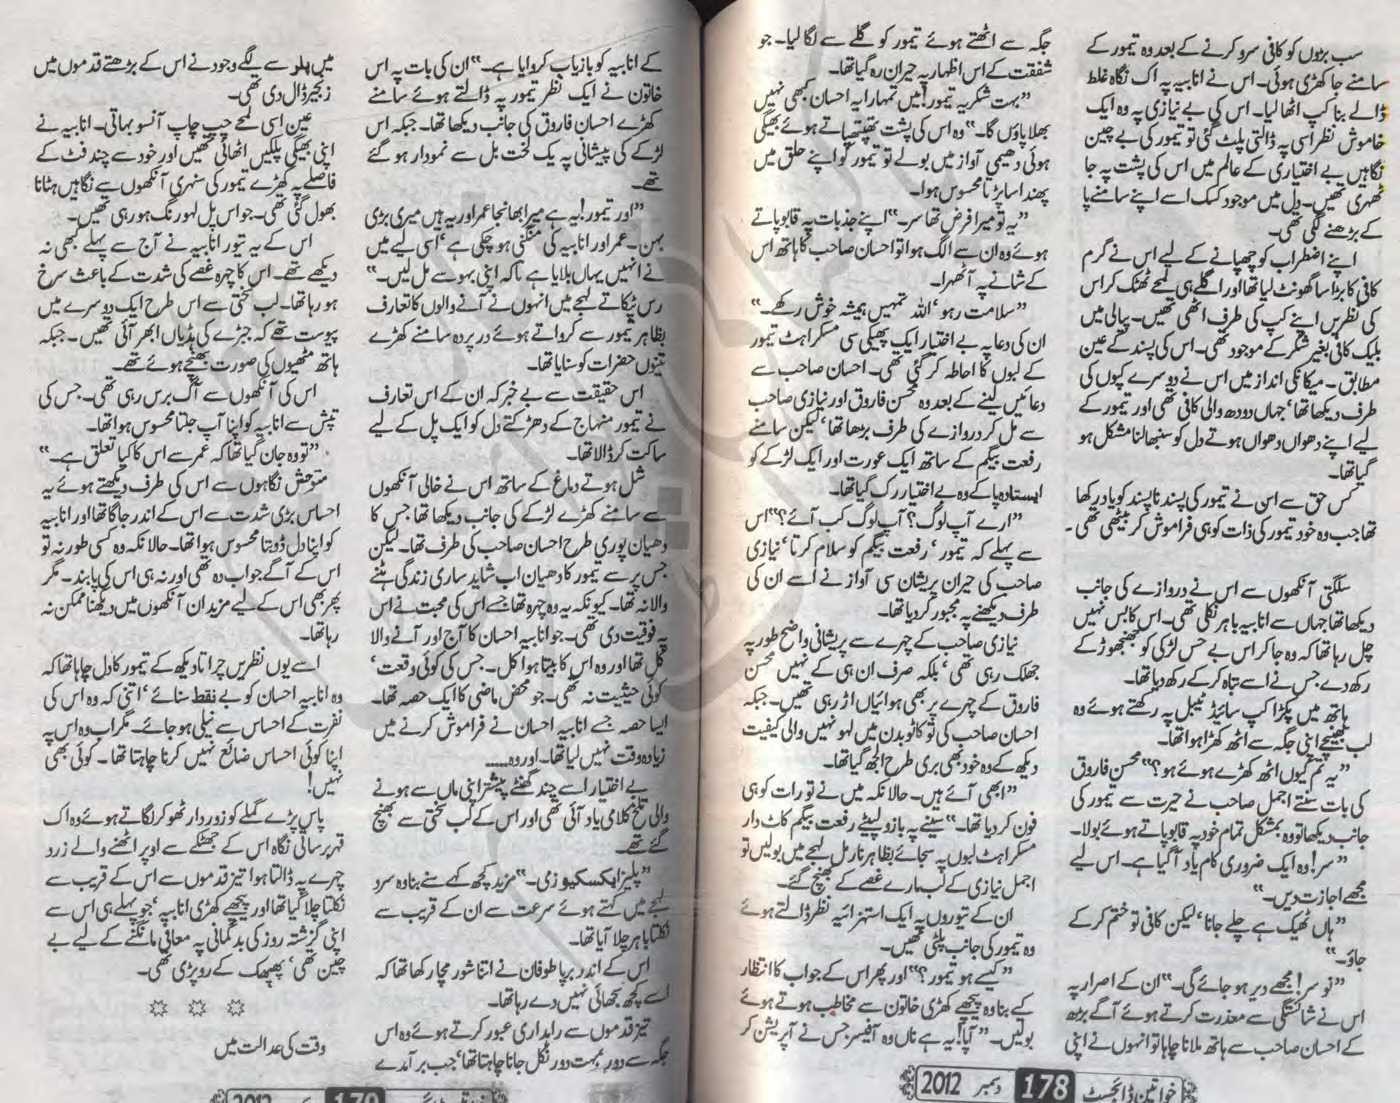 سب بڑوں کو کافی سرو کرنے کے بعد وہ تیمور کے
سامنے جا کھڑی ہوئی۔ اس نے انابیہ پہ اک نگاہ غلط
ڈالے بنا کپ اٹھا لیا۔ اس کی بے نیازی پہ وہ ایک
خاموش نظر اسی پہ ڈالتی پلٹ گئی تو تیمور کی بے چین
نگاہیں بے اختیاری کے عالم میں اس کی پشت پہ جا
ٹھہری تھیں۔ دل میں موجود کسک اسے اپنے سامنے پا
کے بڑھنے لگی تھی۔
اپنے اضطراب کو چھپانے کے لیے اس نے گرم
کافی کا بڑا سا گھونٹ لیا تھا اور اگلے ہی لمحے ٹھٹک کر اس
کی نظریں اپنے کپ کی طرف اٹھی تھیں۔ پیالی میں
بلیک کافی بغیر شکر کے موجود تھی۔ اس کی پسند کے عین
مطابق۔ میکانکی انداز میں اس نے دوسرے کپوں کی
طرف دیکھا تھا‘ جہاں دودھ والی کافی تھی اور تیمور کے
لیے اپنے دھواں دھواں ہوتے دل کو سنبھالنا مشکل ہو
گیا تھا۔
کس حق سے اس نے تیمور کی پسند ناپسند کو یاد رکھا
تھا جب وہ خود تیمور کی ذات کو ہی فراموش کر بیٹھی تھی۔
سلگتی آنکھوں سے اس نے دروازے کی جانب
دیکھا تھا جہاں سے انابیہ باہر نکلی تھی۔ اس کا بس نہیں
چل رہا تھا کہ وہ جا کر اس بے حس لڑکی کو جھنجھوڑ کے
رکھ دے جس نے اسے تباہ کر کے رکھ دیا تھا۔
ہاتھ میں پکڑا کپ سائیڈ ٹیبل پہ رکھتے ہوئے وہ
لب بھینچے اپنی جگہ سے اٹھ کھڑا ہوا تھا۔
”یہ تم کیوں اٹھ کھڑے ہوئے ہو؟“ محسن فاروق
کی بات سنتے اجمل صاحب نے حیرت سے تیمور کی
جانب دیکھا تو وہ بمشکل تمام خود پہ قابو پاتے ہوئے بولا۔
”سر! وہ ایک ضروری کام یاد آ گیا ہے۔ اس لیے
مجھے اجازت دیں۔“
”ہاں ٹھیک ہے چلے جانا‘ لیکن کافی تو ختم کر کے
جاؤ۔“
”نو سر! مجھے دیر ہو جائے گی۔“ ان کے اصرار پہ
اس نے شائستگی سے معذرت کرتے ہوئے آگے بڑھ
کے احسان صاحب سے ہاتھ ملانا چاہا تو انہوں نے اپنی
جگہ سے اٹھتے ہوئے تیمور کو گلے سے لگا لیا۔ جو
شفقت کے اس اظہار پہ حیران رہ گیا تھا۔
”بہت شکریہ تیمور! میں تمہارا یہ احسان کبھی نہیں
بھلا پاؤں گا۔“ وہ اس کی پشت تھپتھپاتے ہوئے بھیگی
ہوئی دھیمی آواز میں بولے تو تیمور کو اپنے حلق میں
پھندا سا پڑتا محسوس ہوا۔
”یہ تو میرا فرض تھا سر۔“ اپنے جذبات پہ قابو پاتے
ہوئے وہ ان سے الگ ہوا تو احسان صاحب کا ہاتھ اس
کے شانے پہ آ ٹھہرا۔
”سلامت رہو‘ اللہ تمہیں ہمیشہ خوش رکھے۔“
ان کی دعا پہ بے اختیار ایک پھیکی سی مسکراہٹ تیمور
کے لبوں کا احاطہ کر گئی تھی۔ احسان صاحب سے
دعائیں لینے کے بعد وہ محسن فاروق اور نیازی صاحب
سے مل کر دروازے کی طرف بڑھا تھا‘ لیکن سامنے
رفعت بیگم کے ساتھ ایک عورت اور ایک لڑکے کو
ایستادہ پا کے وہ بے اختیار رک گیا تھا۔
”ارے آپ لوگ؟ آپ لوگ کب آئے؟“ اس
سے پہلے کہ تیمور‘ رفعت بیگم کو سلام کرتا‘ نیازی
صاحب کی حیران پریشان سی آواز نے اسے ان کی
طرف دیکھنے پہ مجبور کر دیا تھا۔
نیازی صاحب کے چہرے سے پریشانی واضح طور پہ
جھلک رہی تھی‘ بلکہ صرف ان ہی کے نہیں محسن
فاروق کے چہرے پر بھی ہوائیاں اڑ رہی تھیں۔ جبکہ
احسان صاحب کی تو کاٹو بدن میں لہو نہیں والی کیفیت
دیکھ کے وہ خود بھی بری طرح الجھ گیا تھا۔
”ابھی آئے ہیں۔ حالانکہ میں نے تو رات کو ہی
فون کر دیا تھا۔“ سینے پہ بازو لپیٹے رفعت بیگم کاٹ دار
مسکراہٹ لبوں پہ سجائے بظاہر نارمل لہجے میں بولیں تو
اجمل نیازی کے لب مارے غصے کے بھنچ گئے۔
ان کے تیوروں پہ ایک استہزائیہ نظر ڈالتے ہوئے
وہ تیمور کی جانب پلٹی تھیں۔
”کیسے ہو تیمور؟“ اور پھر اس کے جواب کا انتظار
کیے بنا وہ پیچھے کھڑی خاتون سے مخاطب ہوتے ہوئے
بولیں۔ ”آپا! یہ ہے ناں وہ آفیسر جس نے آپریشن کر
خواتین ڈائجسٹ 178 دسمبر 2012
کے انابیہ کو بازیاب کروایا ہے۔“ ان کی بات پہ اس
خاتون نے ایک نظر تیمور پہ ڈالتے ہوئے سامنے
کھڑے احسان فاروق کی جانب دیکھا تھا۔ جبکہ اس
لڑکے کی پیشانی پہ یک لخت بل سے نمودار ہو گئے
تھے۔
”اور تیمور! یہ ہے میرا بھانجا عمر اور یہ ہیں میری بڑی
بہن۔ عمر اور انابیہ کی منگنی ہو چکی ہے‘ اسی لیے میں
نے انہیں یہاں بلایا ہے تاکہ اپنی بہو سے مل لیں۔“
رس ٹپکاتے لہجے میں انہوں نے آنے والوں کا تعارف
بظاہر تیمور سے کرواتے ہوئے در پردہ سامنے کھڑے
تینوں حضرات کو سنایا تھا۔
اس حقیقت سے بے خبر کہ ان کے اس تعارف
نے تیمور منہاج کے دھڑکتے دل کو ایک پل کے لیے
ساکت کر ڈالا تھا۔
شل ہوتے دماغ کے ساتھ اس نے خالی آنکھوں
سے سامنے کھڑے لڑکے کی جانب دیکھا تھا جس کا
دھیان پوری طرح احسان صاحب کی طرف تھا۔ لیکن
جس پر سے تیمور کا دھیان اب شاید ساری زندگی ہٹنے
والا نہ تھا۔ کیونکہ یہ وہ چہرہ تھا جسے اس کی محبت نے اس
پہ فوقیت دی تھی۔ جو انابیہ احسان کا آج اور آنے والا
کل تھا اور وہ اس کا بیتا ہوا کل۔ جس کی کوئی وقعت‘
کوئی حیثیت نہ تھی۔ جو محض ماضی کا ایک حصہ تھا۔
ایسا حصہ جسے انابیہ احسان نے فراموش کرنے میں
زیادہ وقت نہیں لیا تھا۔ اور وہ.....
بے اختیار اسے چند گھنٹے پیشتر اپنی ماں سے ہونے
والی تلخ کلامی یاد آئی تھی اور اس کے لب سختی سے بھنچ
گئے تھے۔
”پلیز ایکسکیوزمی۔“ مزید کچھ کہے سنے بنا وہ سرد
لہجے میں کہتے ہوئے سرعت سے ان کے قریب سے
نکلتا باہر چلا آیا تھا۔
اس کے اندر برپا طوفان نے اتنا شور مچا رکھا تھا کہ
اسے کچھ سجھائی نہیں دے رہا تھا۔
تیز قدموں سے راہداری عبور کرتے ہوئے وہ اس
جگہ سے دور‘ بہت دور نکل جانا چاہتا تھا‘ جب برآمدے
میں پلر سے لگے وجود نے اس کے بڑھتے قدموں میں
زنجیر ڈال دی تھی۔
عین اسی لمحے چپ چاپ آنسو بہاتی۔ انابیہ نے
اپنی بھیگی پلکیں اٹھائی تھیں اور خود سے چند فٹ کے
فاصلے پہ کھڑے تیمور کی سنہری آنکھوں سے نگاہیں ہٹانا
بھول گئی تھی۔ جو اس پل لہو رنگ ہو رہی تھیں۔
اس کے یہ تیور انابیہ نے آج سے پہلے کبھی نہ
دیکھے تھے۔ اس کا چہرہ غصے کی شدت کے باعث سرخ
ہو رہا تھا۔ لب سختی سے اس طرح ایک دوسرے میں
پیوست تھے کہ جبڑے کی ہڈیاں ابھر آئی تھیں۔ جبکہ
ہاتھ مٹھیوں کی صورت بھنچے ہوئے تھے۔
اس کی آنکھوں سے آگ برس رہی تھی۔ جس کی
تپش سے انابیہ کو اپنا آپ جلتا محسوس ہوا تھا۔
”تو وہ جان گیا تھا کہ عمر سے اس کا کیا تعلق ہے۔“
متوحش نگاہوں سے اس کی طرف دیکھتے ہوئے یہ
احساس بڑی شدت سے اس کے اندر جاگا تھا اور انابیہ
کو اپنا دل ڈوبتا محسوس ہوا تھا۔ حالانکہ وہ کسی طور نہ تو
اس کے آگے جواب دہ تھی اور نہ ہی اس کی پابند۔ مگر
پھر بھی اس کے لیے مزید ان آنکھوں میں دیکھنا ممکن نہ
رہا تھا۔
اسے یوں نظریں چراتا دیکھ کے تیمور کا دل چاہا تھا کہ
وہ انابیہ احسان کو بے نقط سنائے‘ اتنی کہ وہ اس کی
نفرت کے احساس سے نیلی ہو جائے۔ مگر اب وہ اس پہ
اپنا کوئی احساس ضائع نہیں کرنا چاہتا تھا۔ کوئی بھی
نہیں!
پاس پڑے گملے کو زوردار ٹھوکر لگاتے ہوئے وہ اک
قہر برساتی نگاہ اس کے جھٹکے سے اوپر اٹھنے والے زرد
چہرے پہ ڈالتا ہوا تیز قدموں سے اس کے قریب سے
نکلتا چلا گیا تھا اور پیچھے کھڑی انابیہ‘ جو پہلے ہی اس سے
اپنی گزشتہ روز کی بدگمانی پہ معافی مانگنے کے لیے بے
چین تھی‘ پھپھک کے رو پڑی تھی۔
وقت کی عدالت میں
179 2012